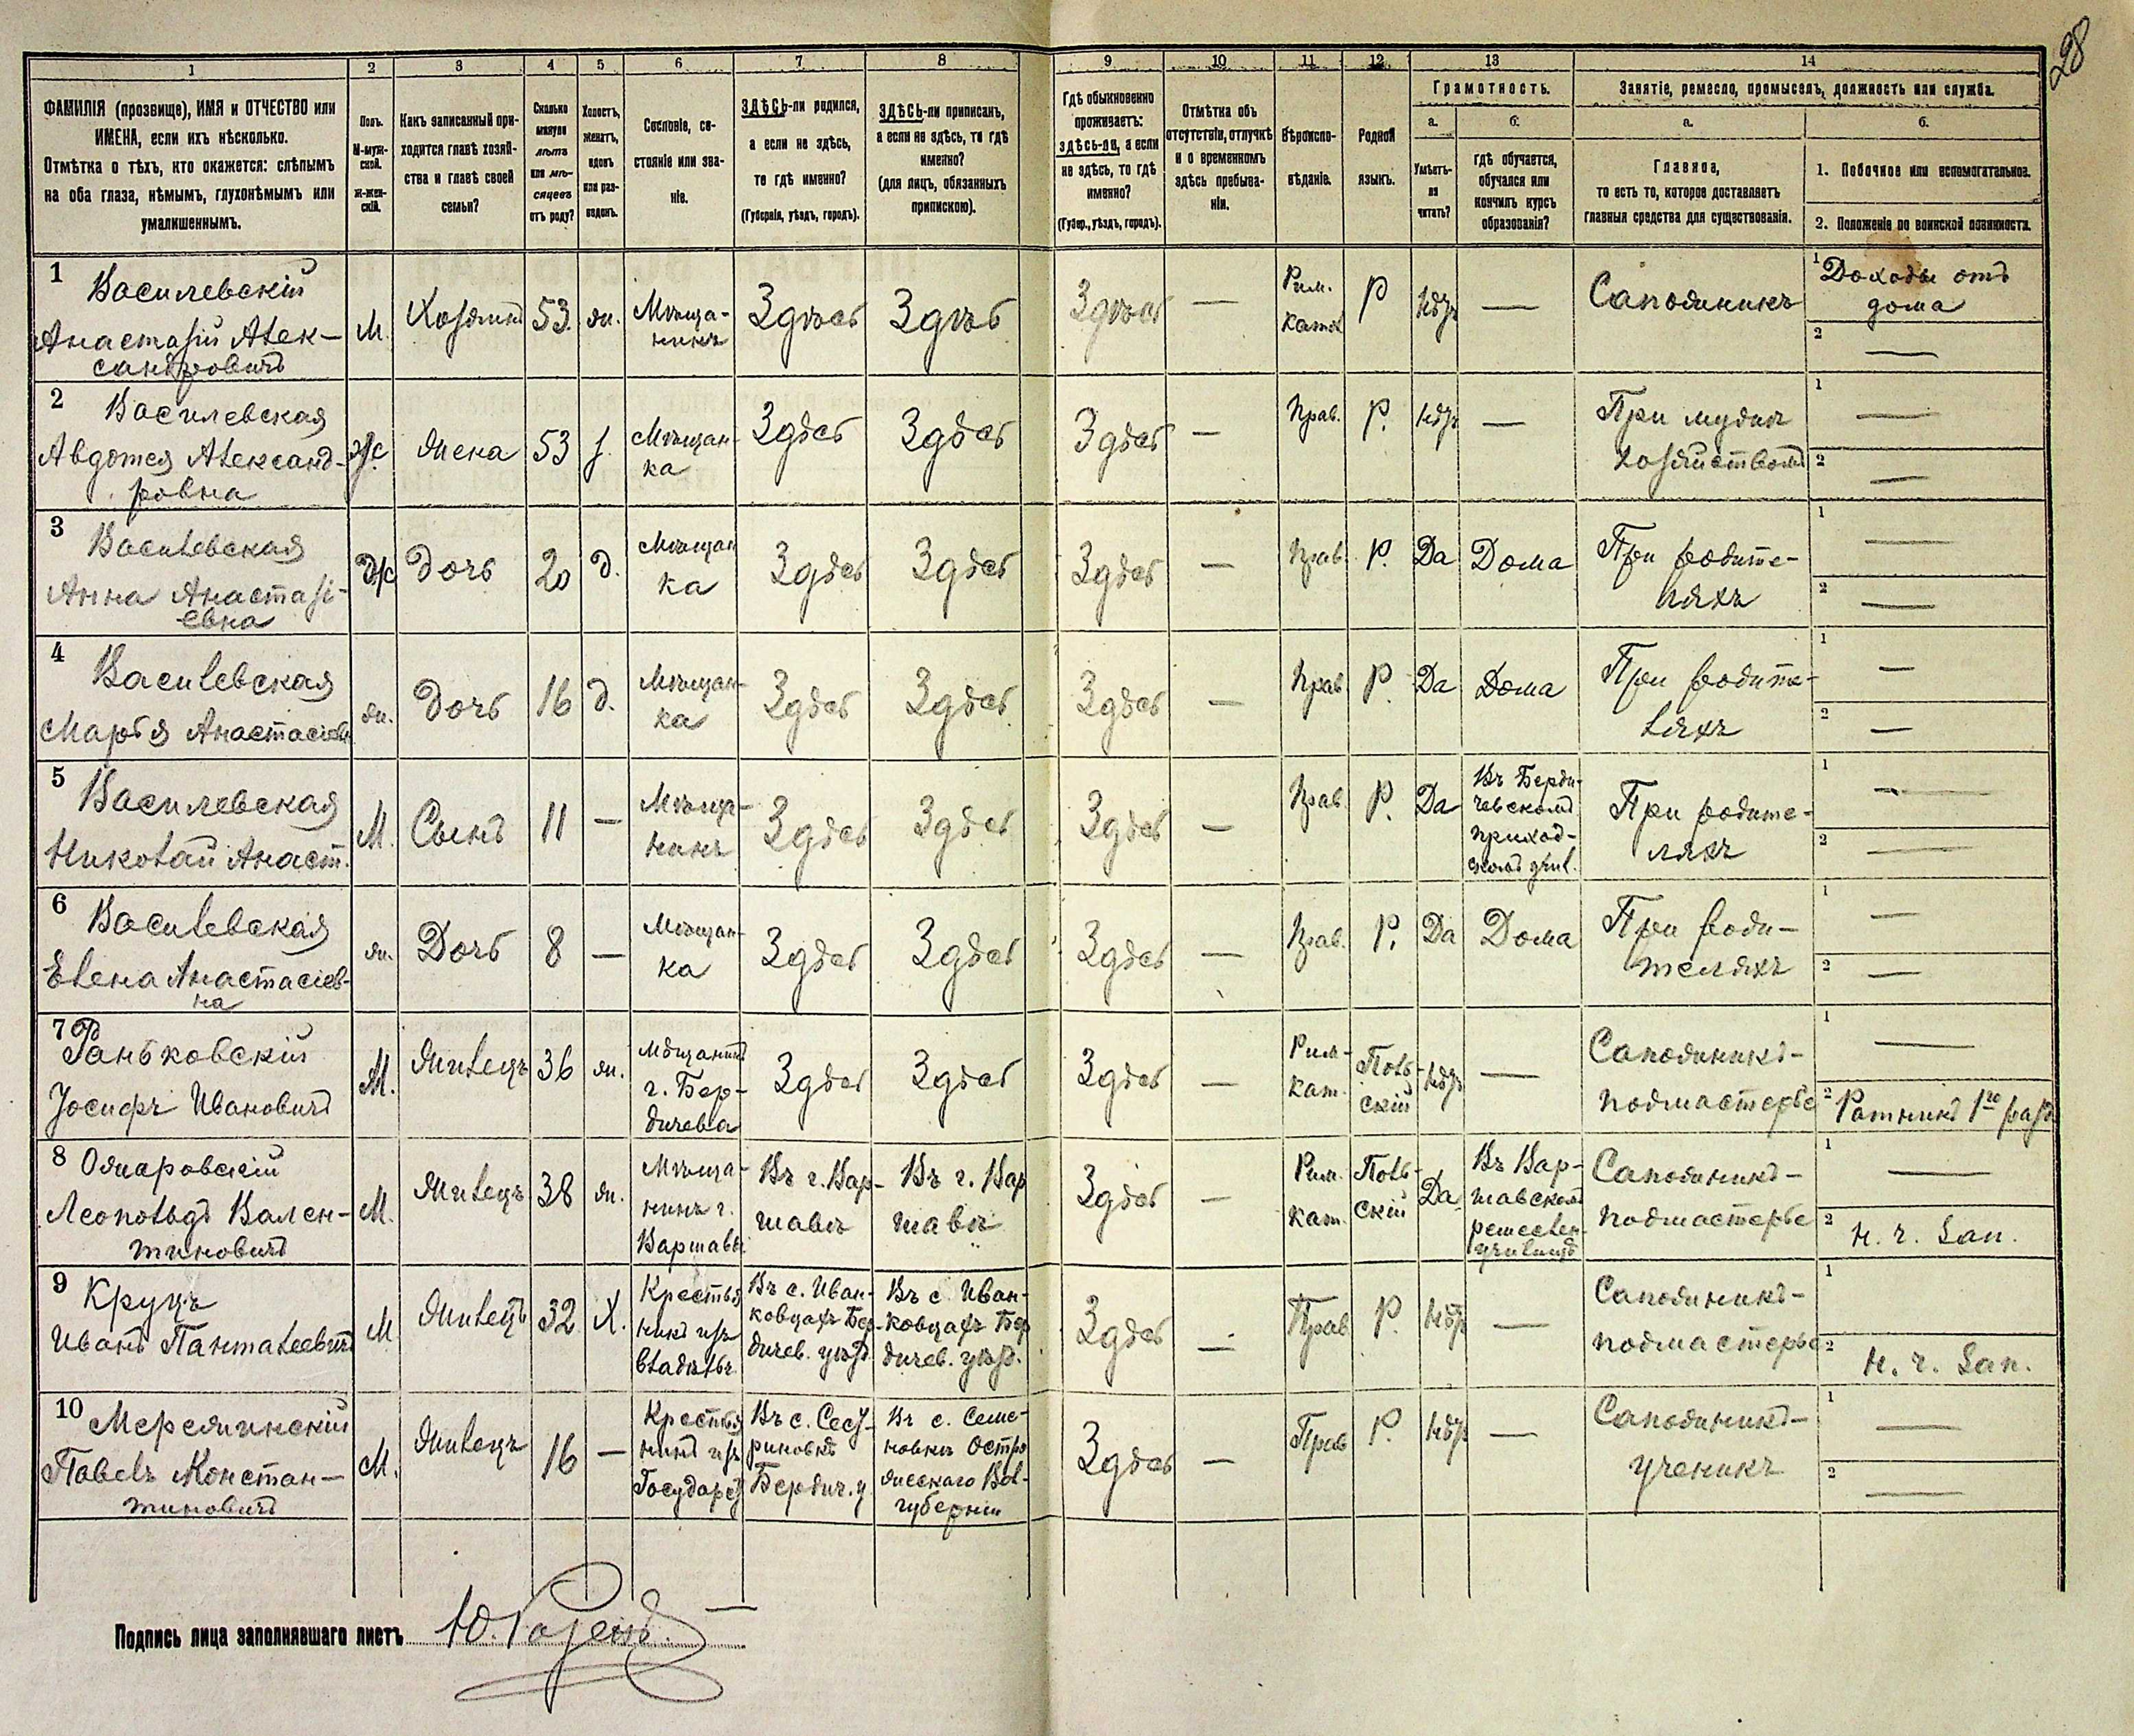 28
1 2 3 4 5 6 7 8 9 10 11 12 13 14
ФАМИЛІЯ (прозвище), ИМЯ и ОТЧЕСТВО или
ИМЕНА, если ихъ нѣсколько.
Отмѣтка о тѣхъ, кто окажется: слѣпымъ
на оба глаза, нѣмымъ, глухонѣмымъ или
умалишеннымъ.
Полъ.
М-муж-
ской.
ж-жен-
скій.
Какъ записанный при-
ходится главѣ хозяй-
ства и главѣ своей
семьи?
Сколько
минуло
лѣтъ
или мѣ-
сяцевъ
отъ роду?
Холостъ,
женатъ,
вдовъ
или раз-
веденъ.
Сословіе, со-
стояніе или зва-
ніе.
ЗДѢСЬ-ли родился,
а если не здѣсь,
то гдѣ именно?
(Губернія, уѣздъ, городъ).
ЗДѢСЬ-ли приписанъ,
а если не здѣсь, то гдѣ
именно?
(для лицъ, обязанныхъ
припискою).
Гдѣ обыкновенно
проживаетъ:
здѣсь-ли, а если
не здѣсь, то гдѣ
именно?
(Губер., уѣздъ, городъ).
Отмѣтка объ
отсутствіи, отлучкѣ
и о временномъ
здѣсь пребыва-
ніи.
Вѣроиспо-
вѣданіе.
Родной
языкъ.
Грамотность.
а.
Умѣетъ-
ли
читать?
б.
гдѣ обучается,
обучался или
кончилъ курсъ
образованія?
Занятіе, ремесло, промыселъ, должность или служба.
а.
Главное,
то есть то, которое доставляетъ
главныя средства для существованія.
б.
1. Побочное или вспомогательное.
2. Положеніе по воинской повинности.
1 Василевскій
Анастасій Алек-
сандровичъ
М.
Хозяинъ
53.
ж.
Мѣща-
нинъ
Здѣсь
Здѣсь
Здѣсь
—
Рим.
катол
Р
Нѣтъ
—
Сапожникъ
1 Доходы отъ
дома
2 —
2 Василевская
Авдотья Александ-
ровна
Ж.
Жена
53
з.
Мѣщан-
ка
Здѣсь
Здѣсь
Здѣсь
—
Прав.
Р.
Нѣтъ
—
При мужѣ
хозяйствомъ
1 —
2 —
3 Василевская
Анна Анастасі-
евна
Ж
Дочь
20
д.
Мѣщан
ка
Здѣсь
Здѣсь
Здѣсь
—
Прав
Р.
Да
Дома
При родите-
ляхъ
1 —
2 —
4 Василевская
Марья Анастасіевн
ж.
Дочь
16
д.
Мѣщан-
ка
Здѣсь
Здѣсь
Здѣсь
—
Прав
Р.
Да
Дома
При родите-
ляхъ
1 —
2 —
5 Василевская
Николай Анаст.
М.
Сынъ
11
—
Мѣща-
нинъ
Здѣсь
Здѣсь
Здѣсь
—
Прав.
Р.
Да
Въ Берди-
чевскомъ
приход-
скомъ учил.
При родите-
ляхъ
1 —
2 —
6 Василевская
Елена Анастасіев-
на
ж.
Дочь
8
—
Мѣщан-
ка
Здѣсь
Здѣсь
Здѣсь
—
Прав.
Р.
Да
Дома
При роди-
теляхъ
1 —
2 —
7 Раньковскій
Іосифъ Ивановичъ
М.
Жилецъ
36
ж.
Мѣщанинъ
г. Бер-
дичева
Здѣсь
Здѣсь
Здѣсь
—
Рим-
кат.
Поль-
скій
Нѣтъ
—
Сапожникъ-
подмастерье
1 —
2 Ратникъ 1го разр
8 Ожаровскій
Леопольдъ Вален-
тиновичъ
М.
Жилецъ
38
ж.
Мѣща-
нинъ г.
Варшавы
Въ г. Вар-
шавѣ
Въ г. Вар
шавѣ
Здѣсь
—
Рим.
кат.
Поль-
скій
Да
Въ Вар-
шавскомъ
ремеслен
училищѣ
Сапожникъ-
подмастерье
1 —
2 н. ч. зап.
9 Круцъ
Иванъ Панталеевичъ
М
Жилецъ
32
Х.
Крестья
нинъ изъ
владѣльч.
Въ с. Иван-
ковцахъ Бер-
дичев. уѣзд.
Въ с Иван-
ковцахъ Бер
дичев. уѣзд.
Здѣсь
—
Прав
Р.
Нѣтъ
—
Сапожникъ-
подмастерье
1
2 н. ч. зап.
10 Мережинскій
Павелъ Констан-
тиновичъ
М.
Жилецъ
16
—
Крестья
нинъ изъ
Государст
Въ с.
Бердич. у
Въ с. Семе-
новкѣ Остро
жскаго Вол-
губерніи
Здѣсь
—
Прав
Р.
Нѣтъ
—
Сапожникъ-
ученикъ
1 —
2 —
Подпись лица заполнявшаго листъ